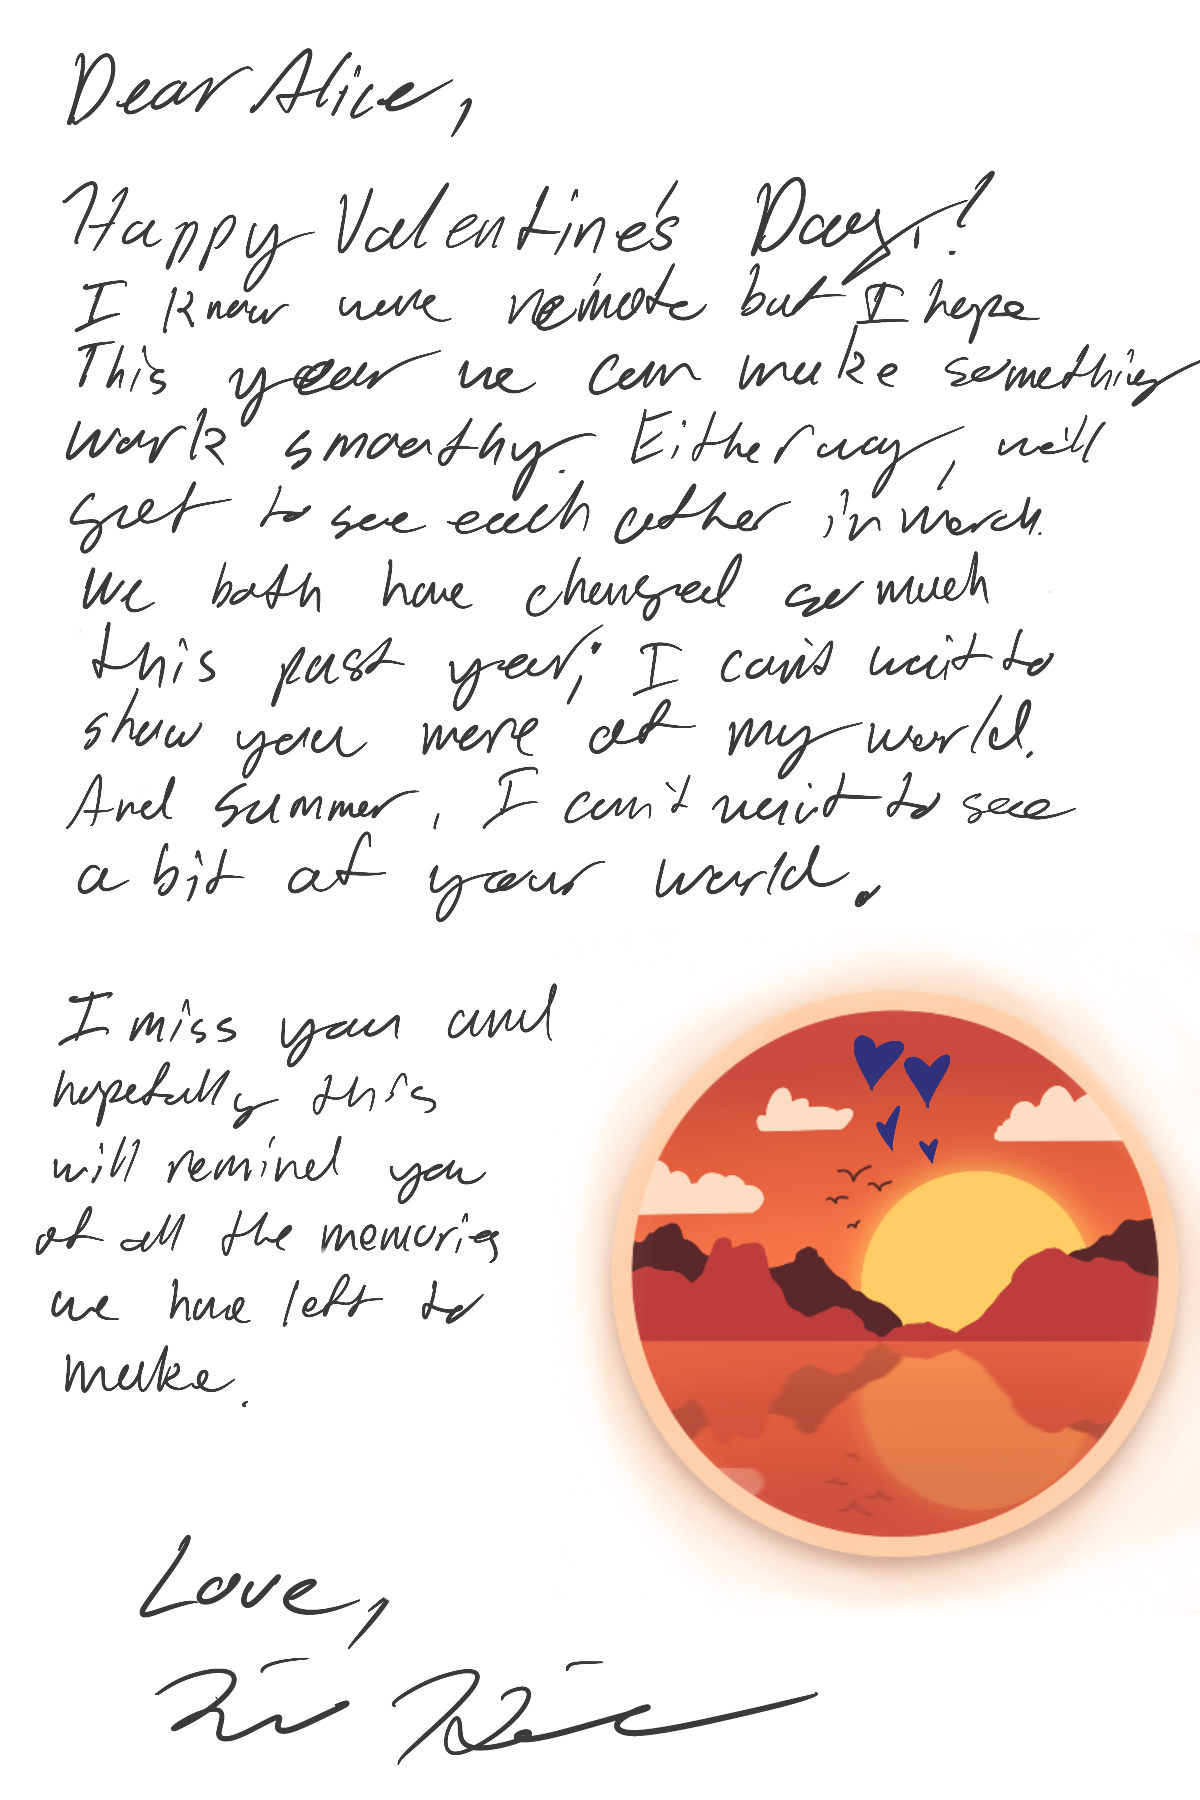 Dear Alice,
Happy Valentine's Day!
I know we're remote but I hope
This year we can make something
work smoothy. Either way, we'll
get to see each other in March.
We both have changed so much
this past year; I can't wait to
show you more of my world.
And summer, I can't wait to see
a bit of your world.
I miss you and
hopefully this
will remind you
of all the memories
we have left to
make.
Love,